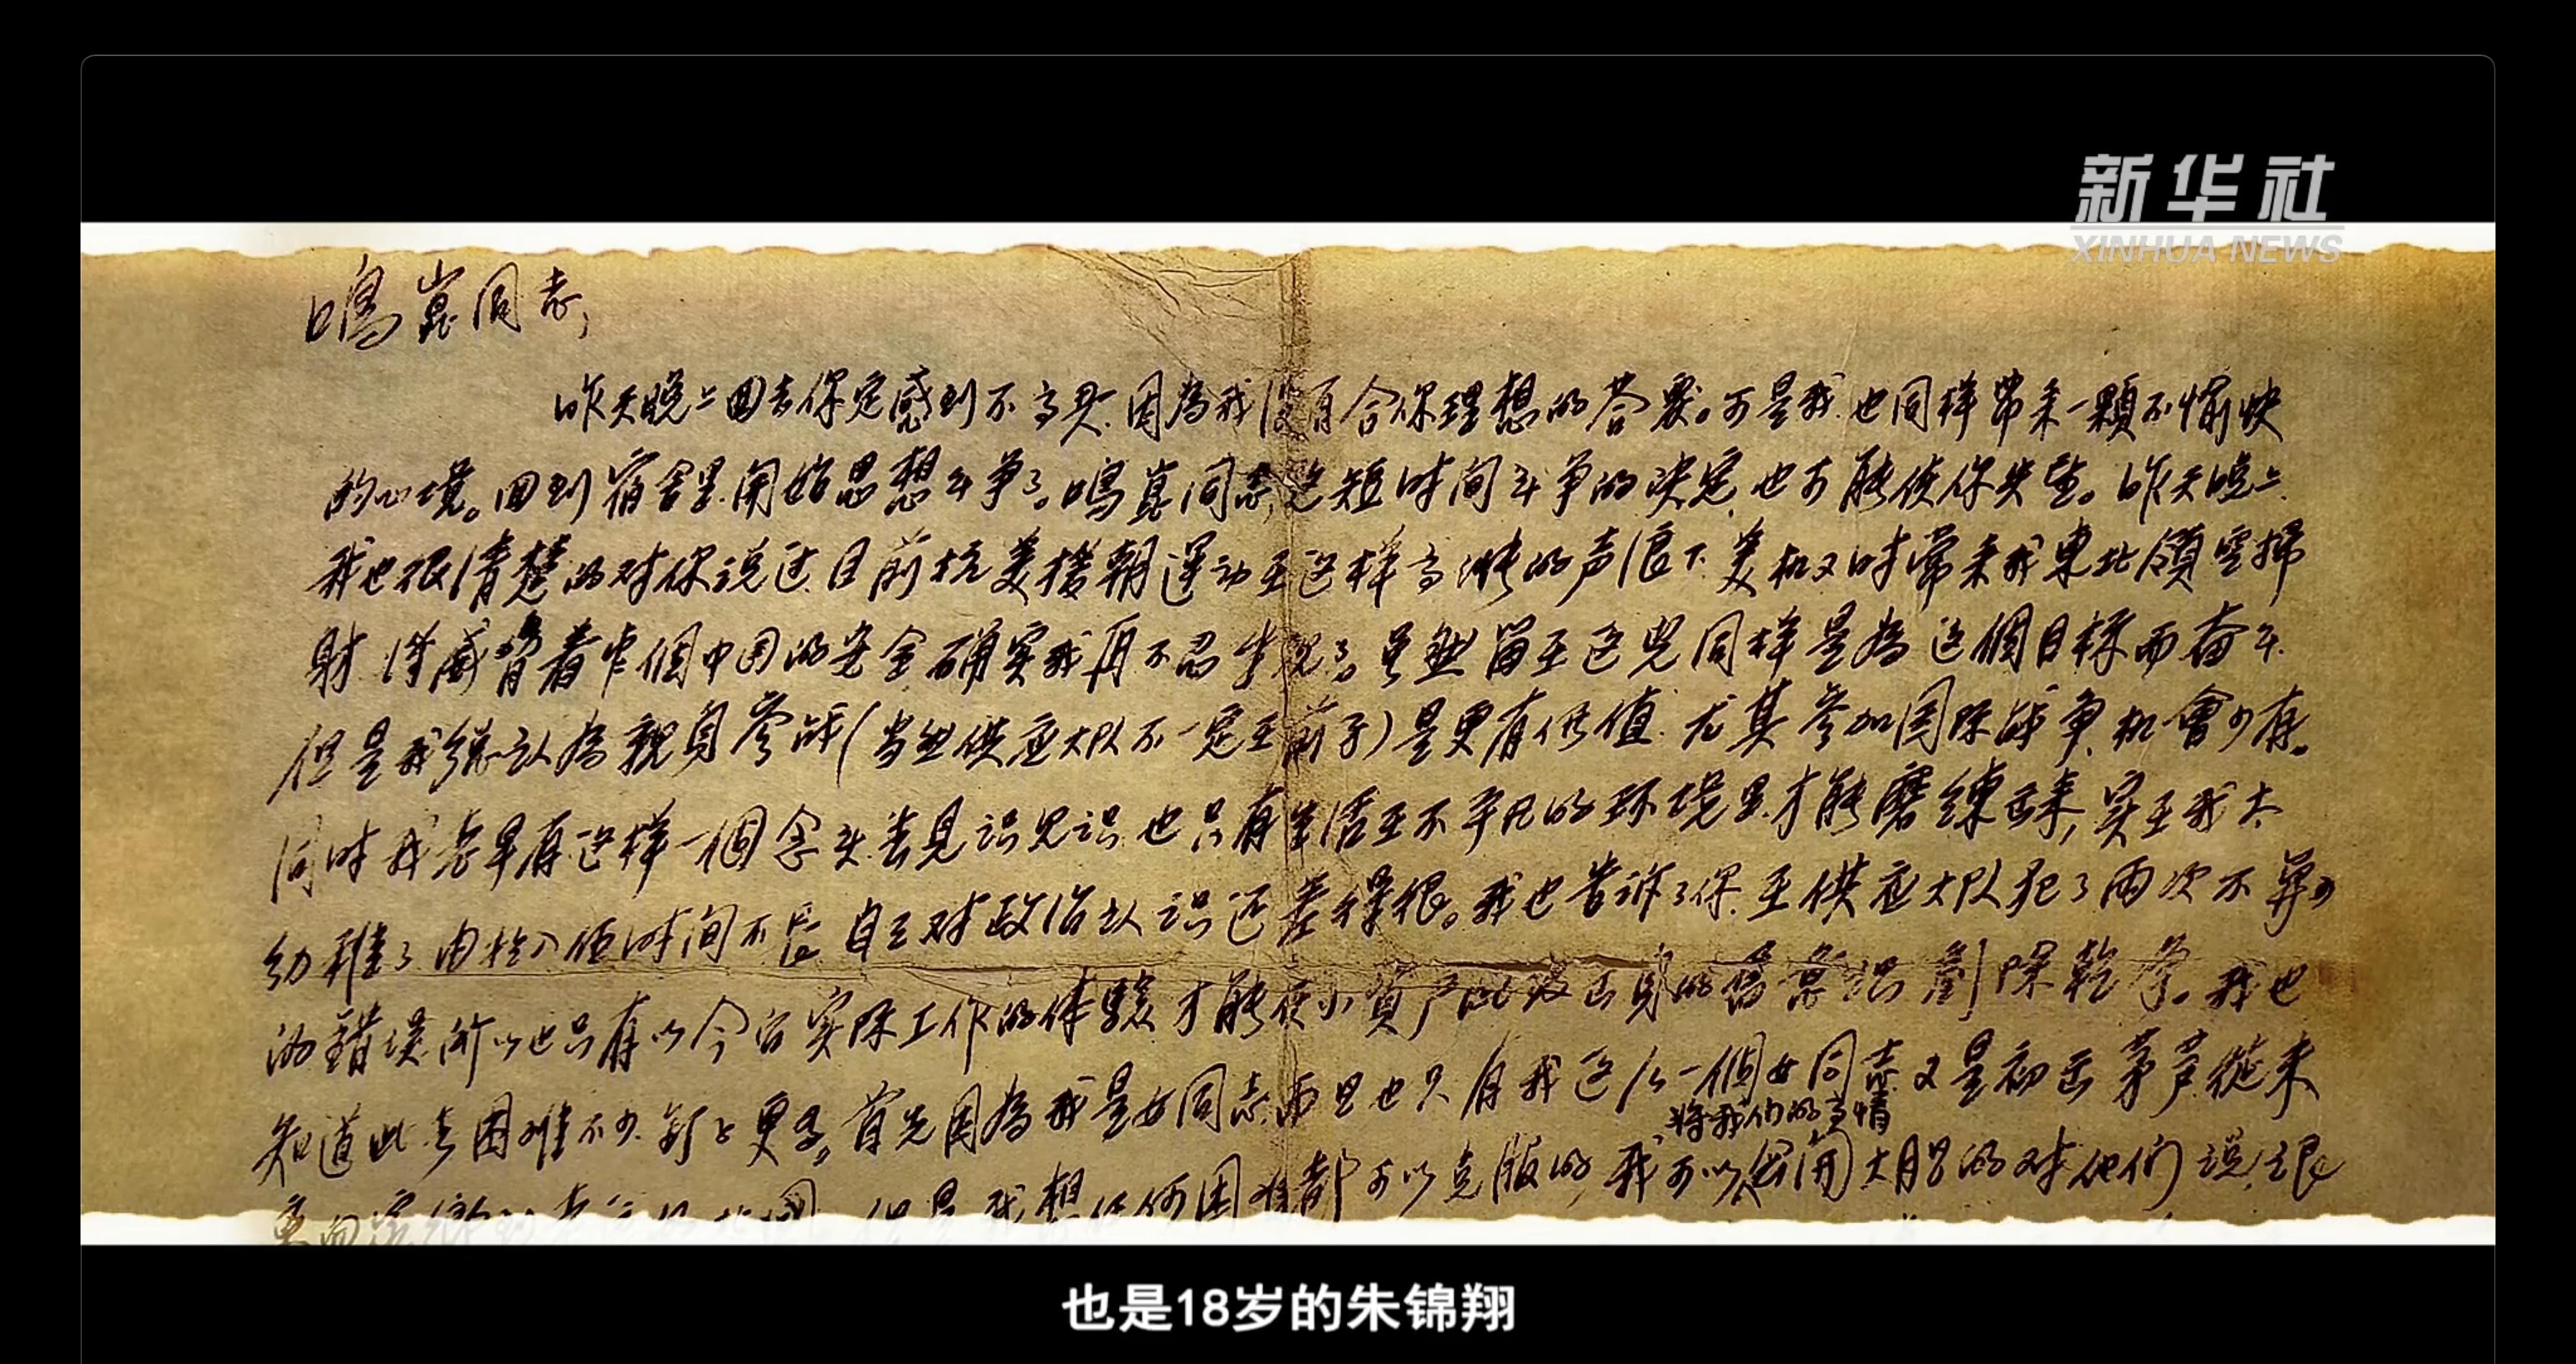 新华社
XINHUA NEWS
鳴崑同志,
昨天晚上回去你定感到不高兴.因為我没有合你理想的答覆。可是我也同样带来一顆不愉快
的心境。回到宿舍里.開始思想斗争了。鳴崑同志,这短时间斗争的决定.也可能使你失望。昨天晚上
我也很清楚的对你说过.目前抗美援朝運动至这样高涨的声浪下.美机又时常来我東北領空掃
射.威脅着中國的安全.確实我再不忍坐视了。虽然留至这兒同样是為这個目标而奋斗.
但是我總认為親自参战(当然供应大队不一定至前方)是更有价值.尤其参加国际战争.机會少有。
同时我老早有这样一個念头.去見识見识.也只有生活至不平凡的环境里.才能磨練出来,实至我太
幼稚了.由於入伍时间不長.自己对政治认识还差得很。我也告訴了你.至供应大队犯了两次不算小
的錯误.所以也只有以今后实际工作的体驗.才能使小資产出身的剷除乾净。我也
知道此去困难不少.更多。首先因為我是女同志.而且也只有我这么一個女同志.又是初出茅芦從来
将我们的事情
但是我想任何困难都可以克服的,我可以公開大胆的对他们说.
也是18岁的朱锦翔